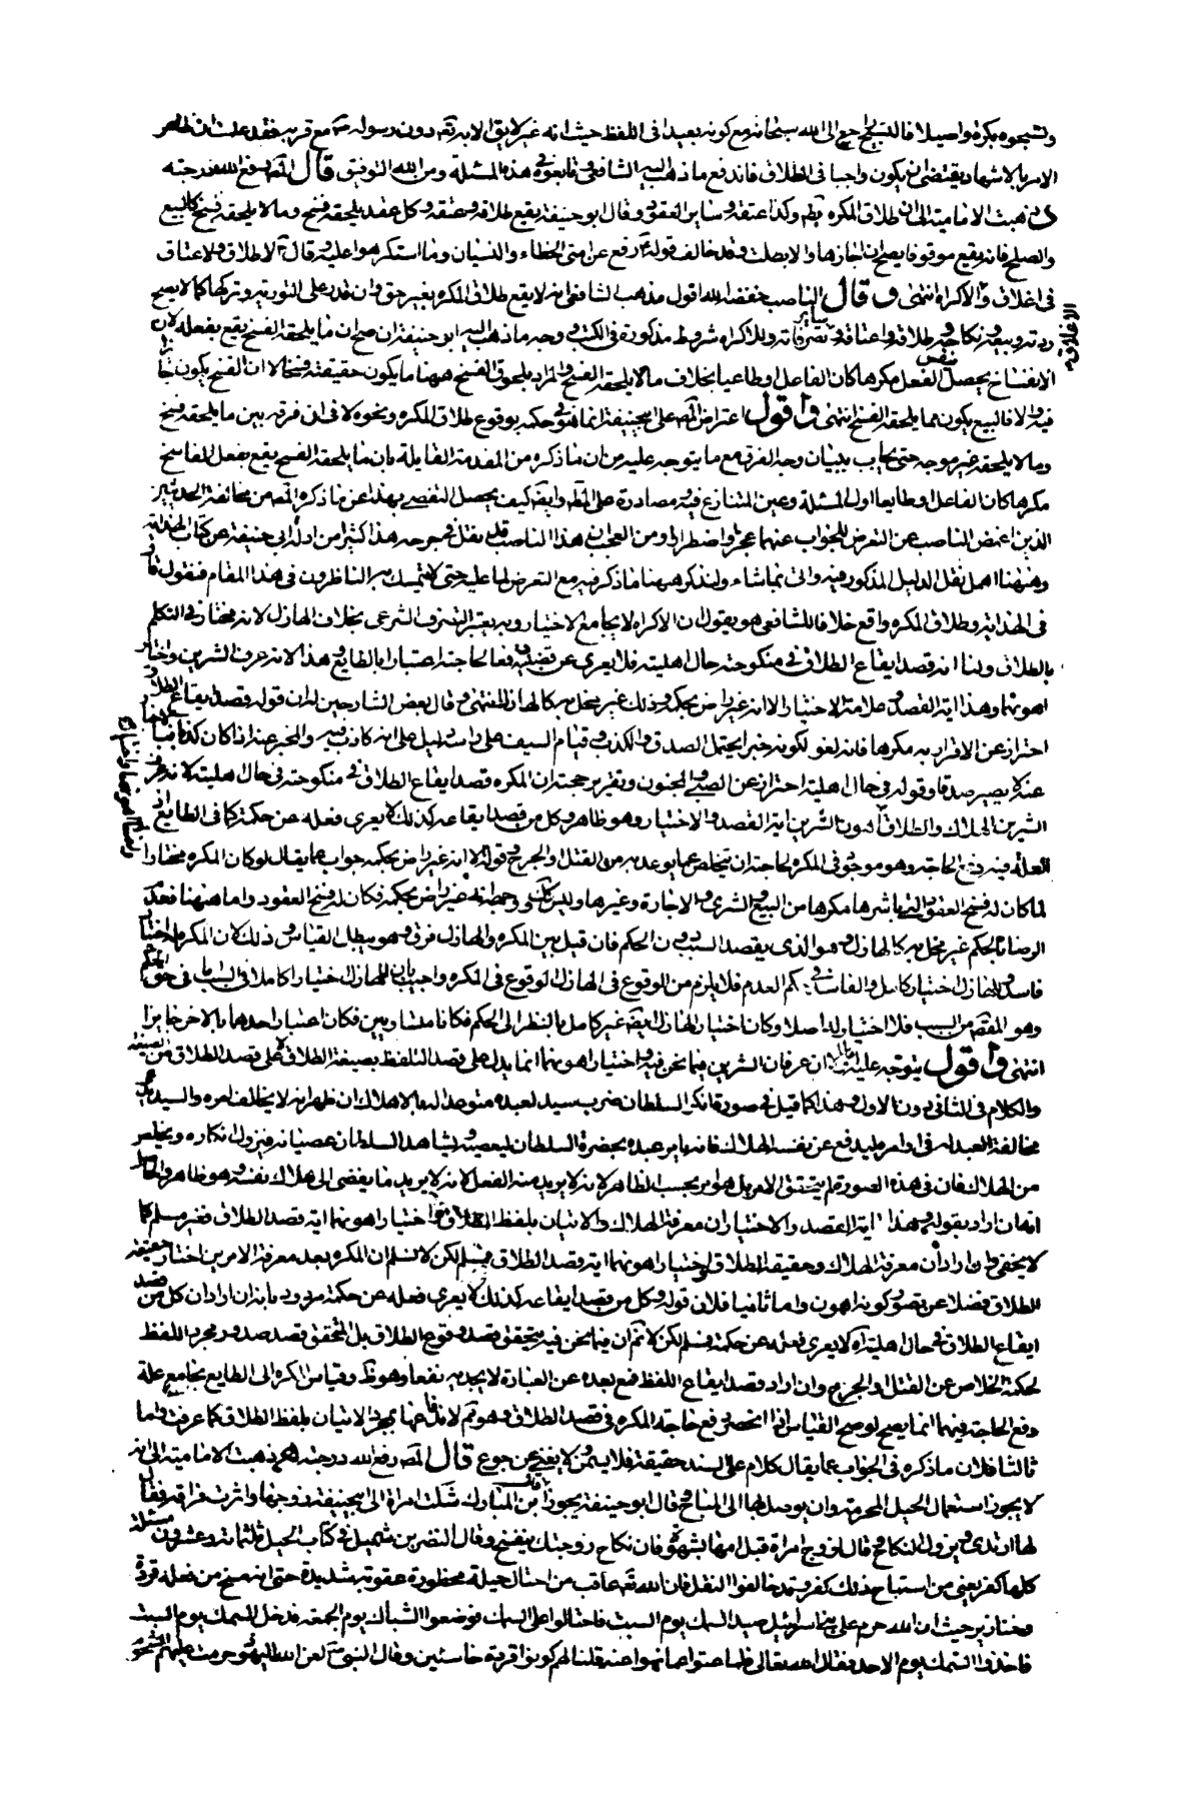 وتسبحوه بكرة واصيلا فالتسبيح راجع الى الله سبحانه مع كونه بعيدا فى اللفظ حيث انه غير لايق الا به تع دون رسوله ص مع قربه فقد علمت ان ظاهر
الامر بالاشهاد يقتضى ان يكون واجبا فى الطلاق فاندفع ما ذهب اليه الشافعى وتابعوه فى هذه المسئلة ومن الله التوفيق قال المص رفع الله درجته
ذهبت الامامية الى ان طلاق المكره بط وكذا عتقه وساير العقود وقال ابو حنيفة يقع طلاقه وعتقه وكل عقد يلحقه فسخ وما لا يلحقه فسخ كالبيع
والصلح فانه يقع موقوفا يصح ان اجازها والا بطلت وقد خالف قوله ص رفع عن امتى الخطاء والنسيان وما استكرهوا عليه وقال ص لا طلاق ولا عتاق
فى اغلاق والاكراه انتهى وقال الناصب خفضه الله اقول مذهب الشافعى انه لا يقع طلاق المكره بغير حق وان قدر على التورية وتركها كما لا يصح
ردته وبيعه ونكاحه وطلاقه واعتاقه وساير تصرفاته وللاكراه شروط مذكورة فى الكتب ووجه ما ذهب اليه ابو حنيفة ان صح ان ما يلحقه الفسخ يقع بفعله لان
الانفساخ يحصل بنفس الفعل مكرها كان الفاعل او طايعا بخلاف ما لا يلحقه الفسخ والمراد بلحوق الفسخ ههنا ما يكون حقيقته فسخا لا ان الفسخ يكون
فيه والا فالبيع يكون مما يلحقه الفسخ انتهى واقول اعتراض المص على ابيحنيفة انما هو فى حكمه بوقوع طلاق المكره ونحوه لا فى ان فرقه بين ما يلحقه فسخ
وما لا يلحقه غير موجه حتى يجاب ببيان وجه الفرق مع ما يتوجه عليه من ان ما ذكره من المقدمة القايلة بان ما يلحقه الفسخ يقع بفعل الفاسخ
مكرها كان الفاعل او طايعا اول المسئلة وعين المتنازع فيه ومصادرة على المط وايض كيف يحصل التفصى بهذا عن ما ذكره المص من مخالفة الحديثين
الذين اغمض الناصب عن التعرض للجواب عنهما عجزا واضطرارا ومن العجب ان هذا الناصب قد نقل فى جرحه هذا كثيرا من ادلة ابى حنيفة عن كتاب الهداية
وههنا اهمل نقل الدليل المذكور فيه واتى بما شاء ولنذكر ههنا ما ذكر فيه مع التعرض لما عليه حتى لا يتمسك به الناظرون فى هذا المقام فنقول قال
فى الهداية وطلاق المكره واقع خلافا للشافعى هو يقول ان الاكراه لا يجامع الاختيار وبه يعتبر التصرف الشرعى بخلاف الهازل لانه مختار فى التكلم
بالطلاق ولنا انه قصد ايقاع الطلاق فى منكوحته حال اهليته فلا يعرى عن قضيته دفعا لحاجته اعتبارا بالطايع وهذا لانه عرف الشرين واختار
اهونهما وهذا اية القصد وعلامة الاختيار الا انه غير راض بحكمه وذلك غير مخل به كالهازل انتهى وقال بعض الشارحين له ان قوله قصد ايقاع الطلاق
احتراز عن الاقرار به مكرها فانه لغو لكونه خبرا يحتمل الصدق والكذب وقيام السيف على راسه دليل على انه كاذب فيه والمخبر عنه اذا كان كذبا
عنه لا يصير صدقا وقوله فى حال اهليته احتراز عن الصبى والمجنون وتقرير حجته ان المكره قصد ايقاع الطلاق فى منكوحته فى حال اهليته لانه عرف
الشرين الهلاك والطلاق اهون الشرين اية القصد والاختيار وهو ظاهر وكل من قصد ايقاعه كذلك لا يعرى فعله عن حكمه كما فى الطايع
العلة فيه دفع الحاجة وهو موجود فى المكره لحاجته ان يتخلص عما يوعد به من القتل والجرح وقوله الا انه غير راض بحكمه جواب عما يقال لو كان المكره مختارا
لما كان له فسخ العقود التى باشرها مكرها من البيع والشرى والاجارة وغيرها وليس كك ووجهه انه غير راض بحكمه فكان له فسخ العقود واما ههنا فعدم
الرضا بالحكم غير مخل به كالهازل وهو الذى يقصد السبب دون الحكم فان قيل بين المكره والهازل فرق وهو يبطل القياس وذلك لان المكره له اختيار
فاسد وللهازل اختيار كامل والفاسد فى حكم العدم فلا يلزم من الوقوع فى الهازل الوقوع فى المكره واجيب بان للهازل اختيارا كاملا فى السبب اما فى حق الحكم
وهو المقصود من السبب فلا اختيار له اصلا وكان اختيار الهازل ايض غير كامل بالنظر الى الحكم فكانا متساويين فكان اعتبار احدهما بالاخر جايزا
انتهى واقول يتوجه عليه اما اولا فلان عرفان الشرين فيما نحن فيه واختيار اهونهما انما يدل على قصد التلفظ بصيغة الطلاق لا على قصد الطلاق من الصيغة
والكلام فى الثانى دون الاول وهذا كما قيل فى صورة ما انكر السلطان ضرب سيد لعبده متوعدا له بالاهلاك ان ظهر انه لا يخالف امره والسيد يدعى
مخالفة العبد له فى اوامره ليدفع عن نفسه الهلاك فانه يامر عبده بحضرة السلطان ليعصيه ويشاهد السلطان عصيانه فيزول انكاره ويخلص
من الهلاك فان فى هذه الصورة لم يتحقق الامر بل هو امر بحسب الظاهر لانه لا يريد منه الفعل لانه لا يريد ما يفضى الى هلاك نفسه وهو ظاهر والحاصل
انه ان اراد بقوله وهذا اية القصد والاختيار ان معرفة الهلاك والاتيان بلفظ الطلاق واختيار اهونهما اية قصد الطلاق فغير مسلم كما
لا يخفى وان اراد ان معرفة الهلاك وحقيقة الطلاق واختيار اهونهما اية قصد الطلاق فمسلم لكن لا نسلم ان المكره بعد معرفة الامرين اختار حقيقة
الطلاق فضلا عن تصور كونه اهون واما ثانيا فلان قوله وكل من قصد ايقاعه كذلك لا يعرى فعله عن حكمه مردود بانه ان اراد ان كل من قصد
ايقاع الطلاق فى حال اهليته اه لا يعرى فعله عن حكمه فمسلم لكن لا نم ان فيما نحن فيه يتحقق قصد وقوع الطلاق بل المتحقق قصد صدور مجرد اللفظ
لحكمة الخلاص عن القتل والجرح وان اراد قصد ايقاع اللفظ فمع بعده عن العبارة لا يجديه نفعا وهو ظ وقياس المكره الى الطايع بجامع علة
دفع الحاجة فيهما انما يصح لو صح القياس اذا انحصر دفع حاجة المكره فى قصد الطلاق وهو مم لاندفاعها بمجرد الاتيان بلفظ الطلاق كما عرفت واما
ثالثا فلان ما ذكره فى الجواب عما يقال كلام على السند حقيقة فلا يسمن ولا يغنى من جوع قال المص رفع الله درجته ذهبت الامامية الى انه
لا يجوز استعمال الحيل المحرمة وان يوصل بها الى المباح وقال ابو حنيفة يجوز قال ابن المبارك شكت امراة الى ابيحنيفة زوجها واثرت فراقه فقال
لها ارتدى فيزول النكاح وقال لزوج امراة قبل امها بشهوة فان نكاح زوجتك ينفسخ وقال النضر بن شميل فى كتاب الحيل ثلثمائة وعشرون مسئلة
كلها كفر يعنى من استباح ذلك كفر وقد خالفوا النقل فان الله تع عاقب من احتال حيلة محظورة عقوبة شديدة حتى انه مسخ من فعله قردة
وخنازير حيث ان الله حرم على بنى اسرائيل صيد السمك يوم السبت فاحتالوا على السمك فوضعوا الشباك يوم الجمعة فدخل السمك يوم السبت
فاخذوا السمك يوم الاحد فقال الله تعالى فلما عتوا عما نهوا عنه قلنا لهم كونوا قردة خاسئين وقال النبى ص لعن الله اليهود حرمت عليهم الشحوم